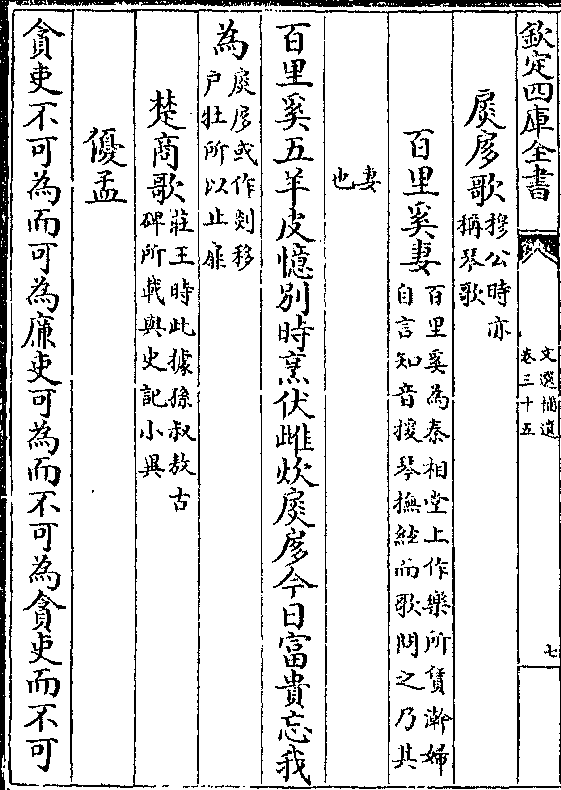 欽定四庫全書
文選補遺
卷三十五
七
扊扅歌穆公時亦
稱琴歌
百里奚妻百里奚為秦相堂上作樂所賃澣婦
自言知音援琴撫絃而歌問之乃其
妻
也
百里奚五羊皮憶別時烹伏雌炊扊扅今日富貴忘我
為扊扅或作剡移
戶牡所以止扉
楚商歌莊王時此據孫叔敖古
碑所載與史記小異
優孟
貪吏不可為而可為廉吏可為而不可為貪吏而不可